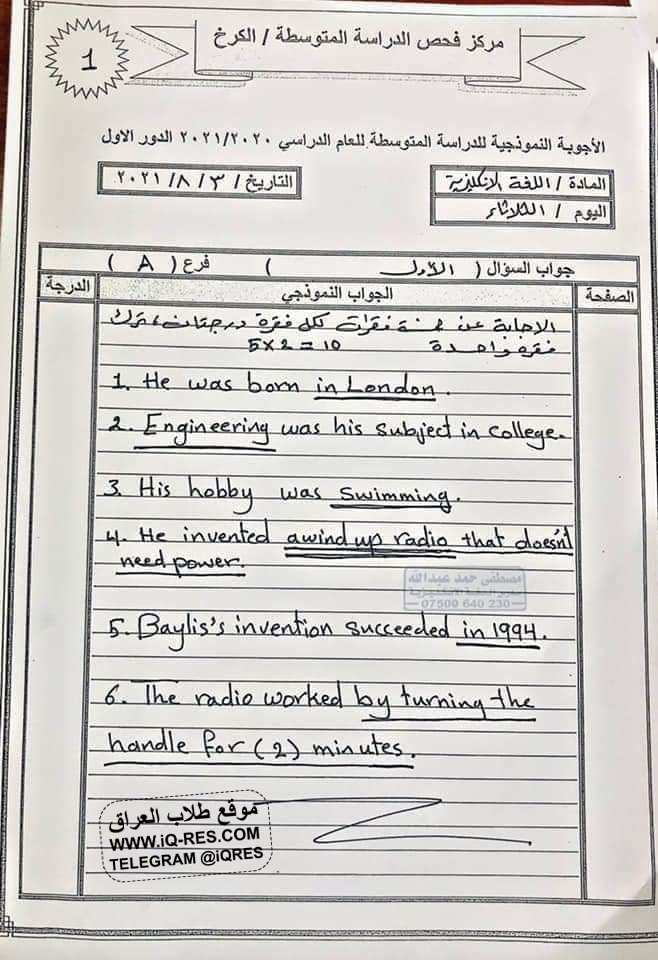 1
مركز فحص الدراسة المتوسطة / الكرخ
الأجوبة النموذجية للدراسة المتوسطة للعام الدراسي ٢٠٢١/٢٠٢٠ الدور الاول
المادة / اللغة الانكليزية
التاريخ / ٣ / ٨ / ٢٠٢١
اليوم / الثلاثاء
جواب السؤال ( الاول ) فرع ( A )
الصفحة
الجواب النموذجي
الدرجة
الاجابة عن خمسة فقرات لكل فقرة درجتان، ترك
فقرة واحدة 5 x 2 = 10
1. He was born in London.
2. Engineering was his subject in college.
3. His hobby was swimming.
4. He invented a wind up radio that doesn't
need power.
مصطفى حمد عبدالله
07500 640 230
5. Baylis's invention succeeded in 1994.
6. The radio worked by turning the
handle for (2) minutes.
موقع طلاب العراق
WWW.iQ-RES.COM
TELEGRAM @iQRES